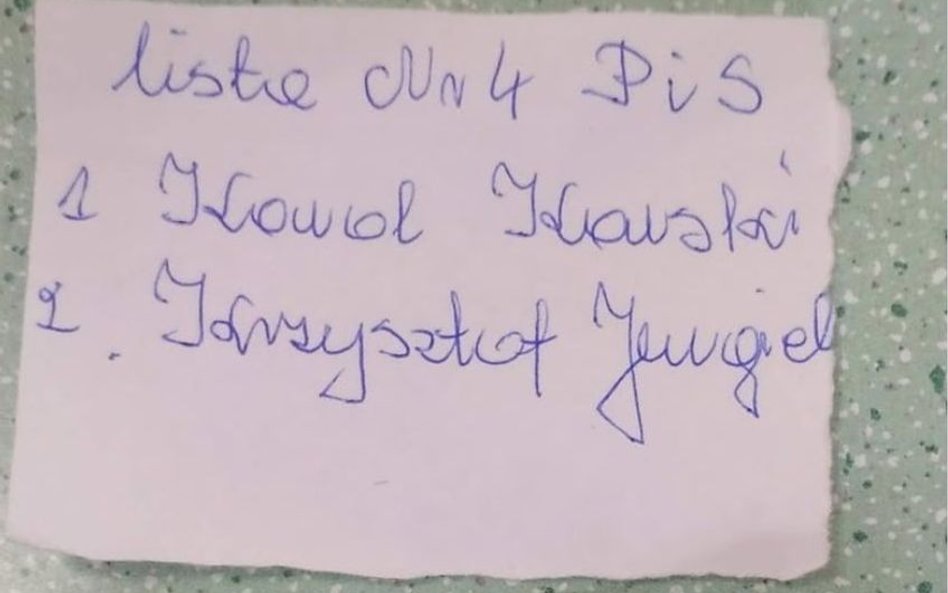 lista Nr 4 PiS
1 Kowal Karski
2. Krzysztof Jurgiel